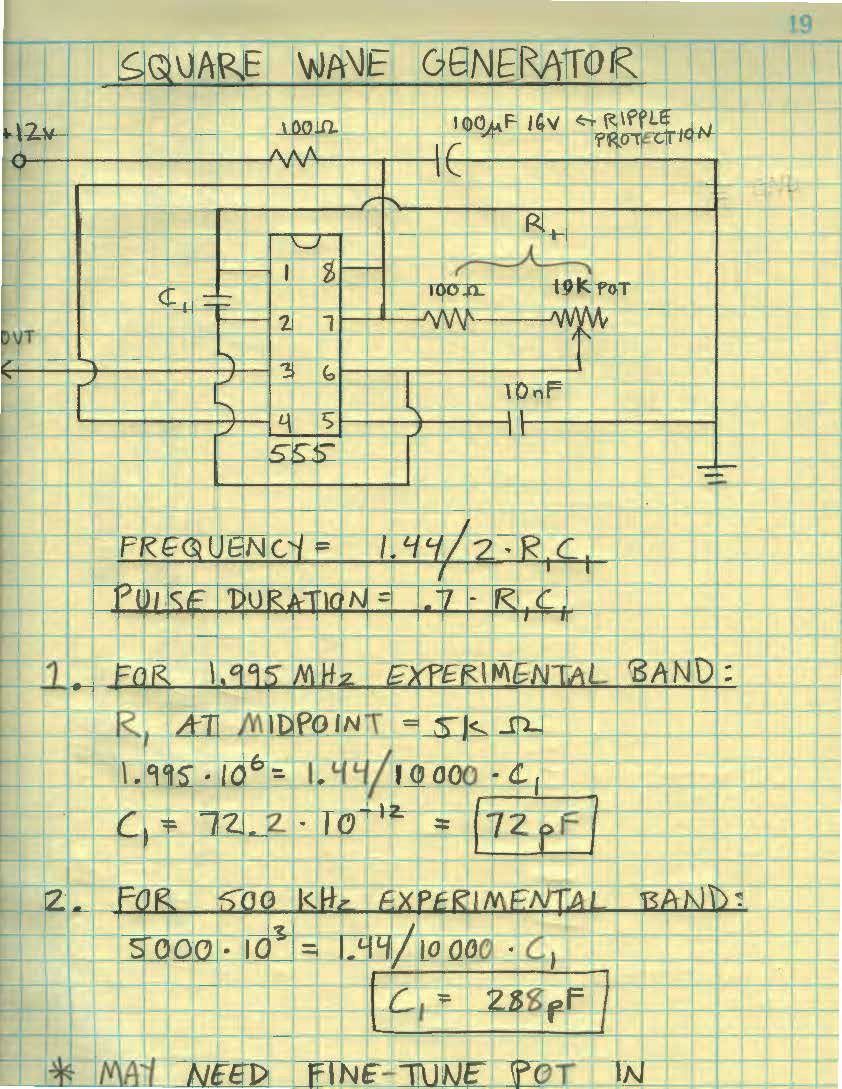 19
SQUARE WAVE GENERATOR
+12V
100Ω
100µF 16V ← RIPPLE PROTECTION
GND
R1
100Ω
10K POT
C1
1 8
2 7
OUT
3 6
10nF
4 5
555
FREQUENCY = 1.44/2·R1C1
PULSE DURATION = .7·R1C1
1. FOR 1.995 MHz EXPERIMENTAL BAND:
R1 AT MIDPOINT = 5k Ω
1.995·10^6 = 1.44/10000·C1
C1 = 72.2·10^-12 = 72pF
2. FOR 500 KHz EXPERIMENTAL BAND:
5000·10^3 = 1.44/10000·C1
C1 = 288pF
* MAY NEED FINE-TUNE POT IN